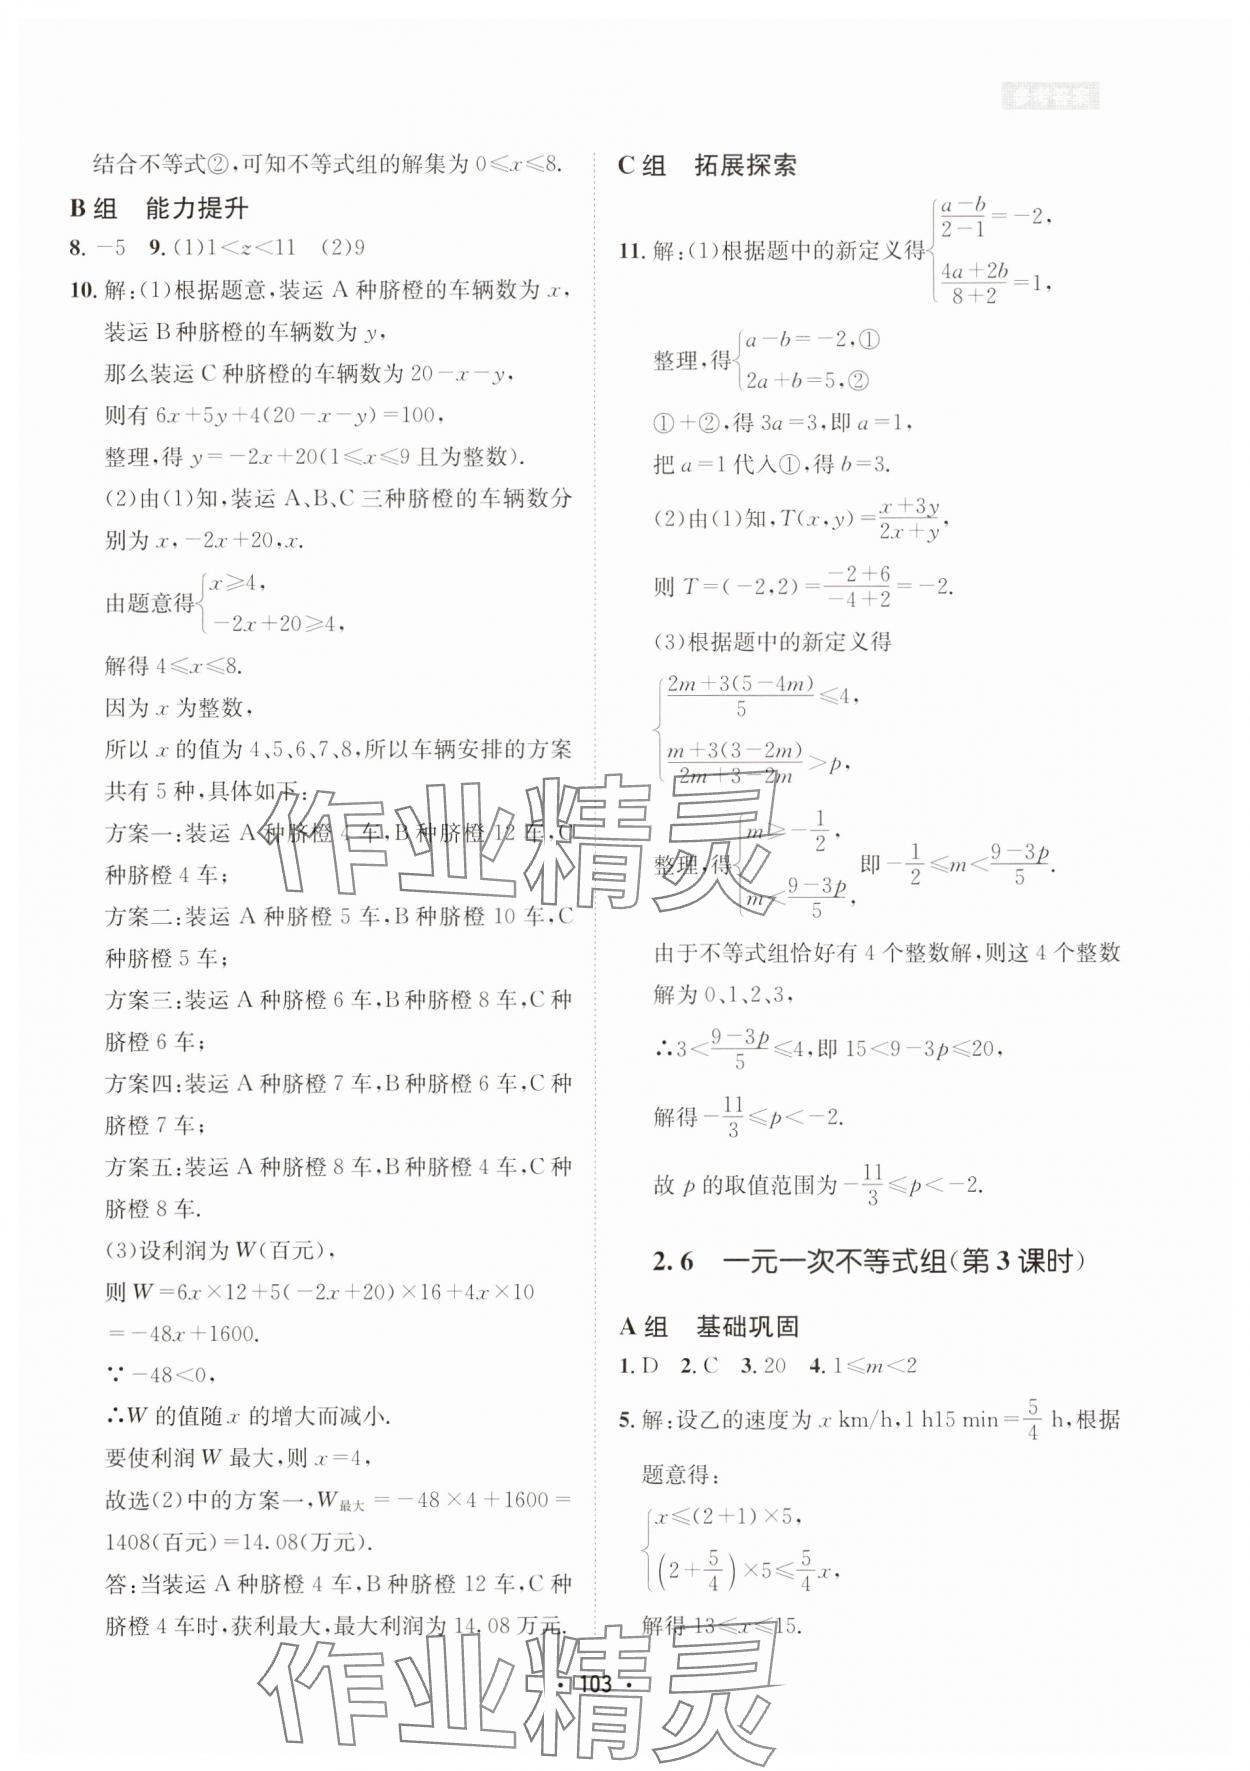 参考答案
结合不等式②,可知不等式组的解集为 0≤x≤8.
B 组 能力提升
8. -5 9. (1)1<z<11 (2)9
10. 解:(1)根据题意,装运 A 种脐橙的车辆数为 x,
装运 B 种脐橙的车辆数为 y,
那么装运 C 种脐橙的车辆数为 20-x-y,
则有 6x+5y+4(20-x-y)=100,
整理,得 y=-2x+20(1≤x≤9 且为整数).
(2)由(1)知,装运 A、B、C 三种脐橙的车辆数分
别为 x,-2x+20,x.
由题意得{x≥4,
-2x+20≥4,
解得 4≤x≤8.
因为 x 为整数,
所以 x 的值为 4、5、6、7、8,所以车辆安排的方案
共有 5 种,具体如下:
方案一:装运 A 种脐橙 4 车,B 种脐橙 12 车,C
种脐橙 4 车;
方案二:装运 A 种脐橙 5 车,B 种脐橙 10 车,C
种脐橙 5 车;
方案三:装运 A 种脐橙 6 车,B 种脐橙 8 车,C 种
脐橙 6 车;
方案四:装运 A 种脐橙 7 车,B 种脐橙 6 车,C 种
脐橙 7 车;
方案五:装运 A 种脐橙 8 车,B 种脐橙 4 车,C 种
脐橙 8 车.
(3)设利润为 W(百元),
则 W=6x×12+5(-2x+20)×16+4x×10
=-48x+1600.
∵-48<0,
∴W 的值随 x 的增大而减小.
要使利润 W 最大,则 x=4,
故选(2)中的方案一,W最大=-48×4+1600=
1408(百元)=14.08(万元).
答:当装运 A 种脐橙 4 车,B 种脐橙 12 车,C 种
脐橙 4 车时,获利最大,最大利润为 14.08 万元.
C 组 拓展探索
11. 解:(1)根据题中的新定义得{(a-b)/(2-1)=-2,
(4a+2b)/(8+2)=1,
整理,得{a-b=-2,①
2a+b=5,②
①+②,得 3a=3,即 a=1,
把 a=1 代入①,得 b=3.
(2)由(1)知,T(x,y)=(x+3y)/(2x+y),
则 T=(-2,2)=(-2+6)/(-4+2)=-2.
(3)根据题中的新定义得
{(2m+3(5-4m))/5≤4,
(m+3(3-2m))/(2m+3-2m)>p,
整理,得{m≥-1/2,
m<(9-3p)/5, 即-1/2≤m<(9-3p)/5.
由于不等式组恰好有 4 个整数解,则这 4 个整数
解为 0、1、2、3,
∴3<(9-3p)/5≤4,即 15<9-3p≤20,
解得-11/3≤p<-2.
故 p 的取值范围为-11/3≤p<-2.
2.6 一元一次不等式组(第 3 课时)
A 组 基础巩固
1. D 2. C 3. 20 4. 1≤m<2
5. 解:设乙的速度为 x km/h,1 h15 min=5/4 h,根据
题意得:
{x≤(2+1)×5,
(2+5/4)×5≤5/4x,
解得 13≤x≤15.
作业精灵
作业精灵
· 103 ·